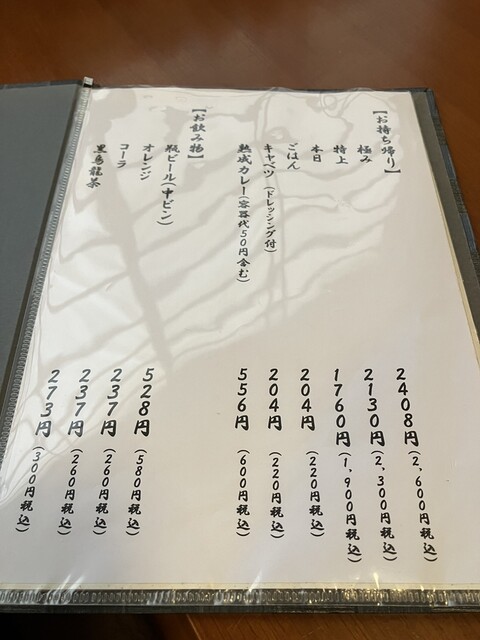 【お持ち帰り】
極み 2408円(2,600円税込)
特上 2130円(2,300円税込)
本日 1760円(1,900円税込)
ごはん 204円(220円税込)
キャベツ(ドレッシング付) 204円(220円税込)
熟成カレー(容器代50円含む) 556円(600円税込)
【お飲み物】
瓶ビール(中ビン) 528円(580円税込)
オレンジ 237円(260円税込)
コーラ 237円(260円税込)
黒烏龍茶 273円(300円税込)